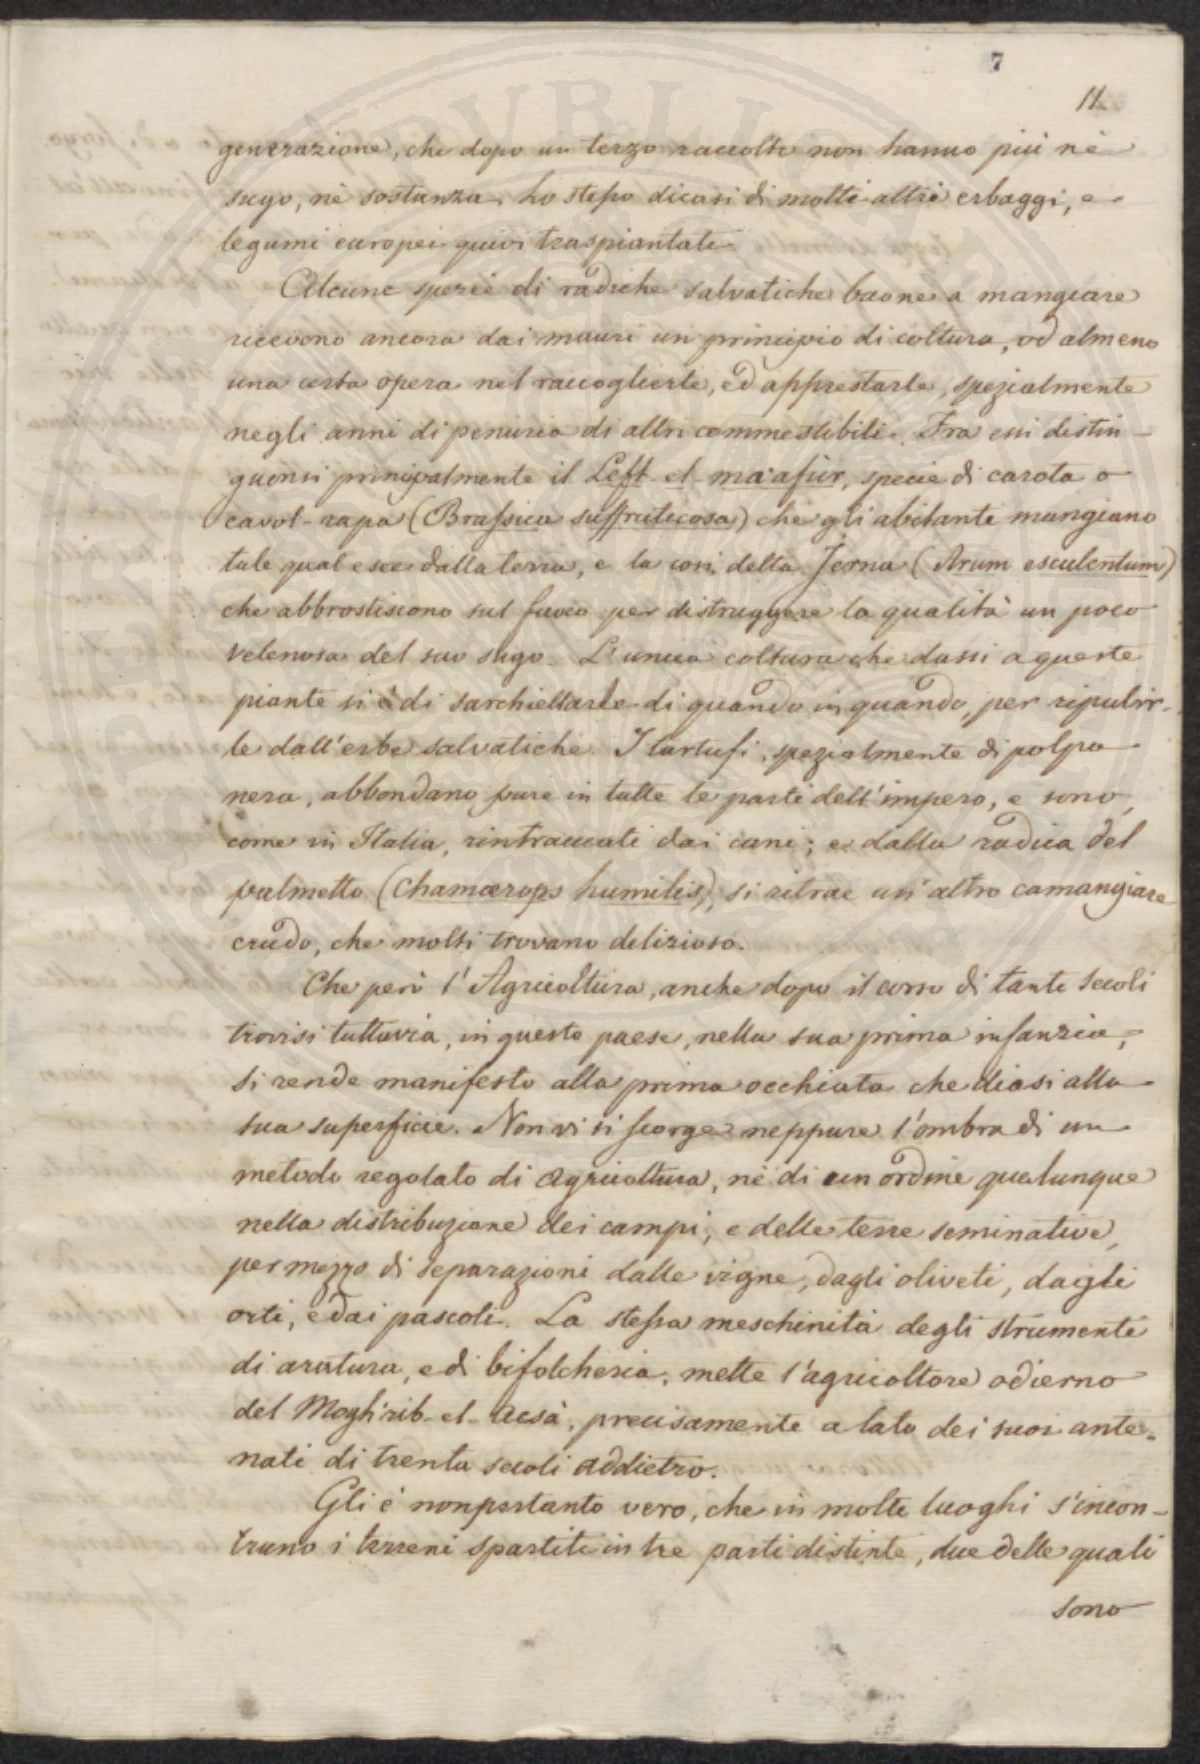 7
11.
generazione, che dopo un terzo raccolto non hanno più nè
sugo, nè sostanza. Lo stesso dicasi di molti altri erbaggi, e
legumi europei quivi traspiantati.
Alcune spezie di radiche salvatiche buone a mangiare
ricevono ancora dai mauri un principio di coltura, od almeno
una certa opera nel raccoglierle, ed apprestarle, spezialmente
negli anni di penuria di altri commestibili. Fra essi distin-
guonsi principalmente il Left-el-maàfùr, specie di carota o
cavol-rapa (Brassica suffruticosa) che gli abitanti mangiano
tale qual esce dalla terra, e la così detta Jerna (Arum esculentum)
che abbrostiscono sul fuoco per distruggere la qualità un poco
velenosa del suo sugo. L'unica coltura che dassi a queste
piante si è di sarchiellarle di quando in quando, per ripulir-
le dall'erbe salvatiche. I tartufi, spezialmente di polpa
nera, abbondano pure in tutte le parti dell'impero, e sono,
come in Italia, rintraccati dai cani; e dalla radica del
palmetto (Chamærops humilis), si ritrae un'altro camangiare
crudo, che molti trovano delizioso.
Che però l'Agricoltura, anche dopo il corso di tanti secoli
trovisi tuttavia, in questo paese, nella sua prima infanzia,
si rende manifesto alla prima occhiata che diasi alla
sua superficie. Non vi si scorge neppure l'ombra di un
metodo regolato di agricoltura, nè di un ordine qualunque
nella distribuzione dei campi, e delle terre seminative,
per mezzo di separazioni dalle vigne, dagli oliveti, dagli
orti, e dai pascoli. La stessa meschinità degli strumenti
di aratura, e di bifolcheria, mette l'agricoltore odierno
del Moghrib-el-Acsà, precisamente a lato dei suoi ante-
nati di trenta secoli addietro.
Gli è nonpertanto vero, che in molti luoghi s'incon-
trano i terreni spartiti in tre parti distinte, due delle quali
sono